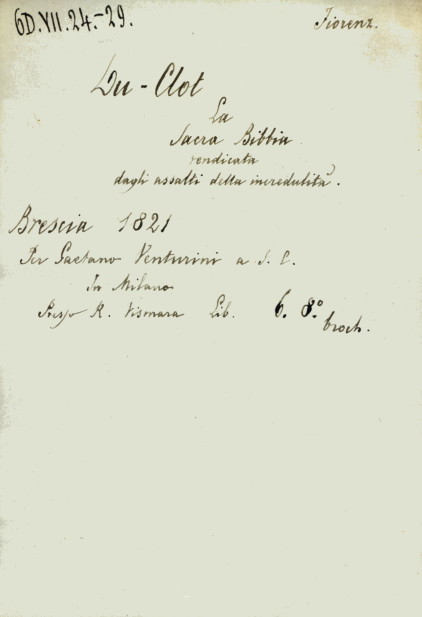 6D.VII.24.-29.
Fiorenz.
Du-Clot
La
Sacra Bibbia
vendicata
dagli assalti della incredulità.
Brescia 1821
Per Gaetano Venturini a S. C.
In Milano
Presso R. Vismara Lib. 6. 8.º
broch.